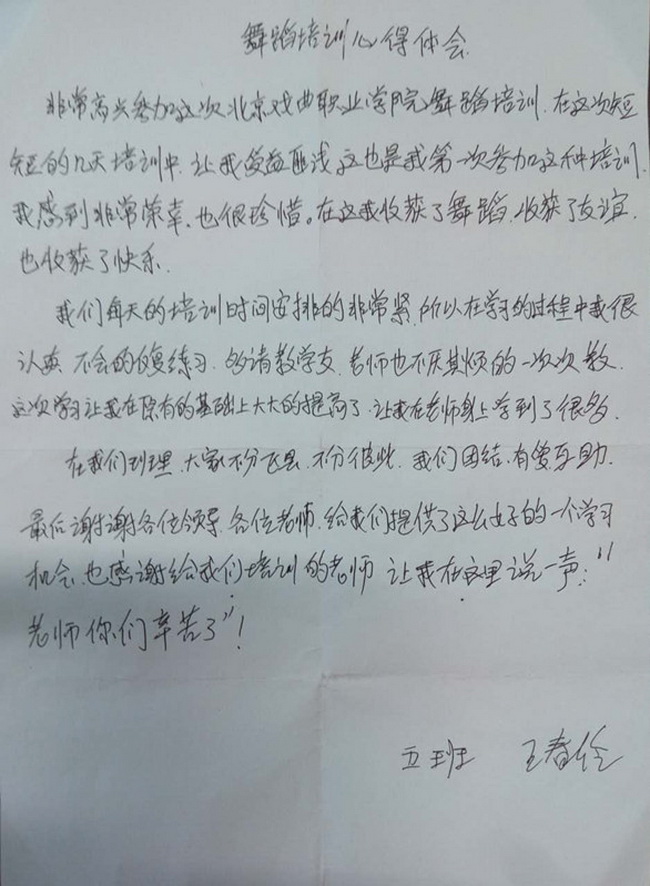 舞蹈培训心得体会
非常高兴参加这次北京戏曲职业学院舞蹈培训.在这次短
短的几天培训中,让我受益匪浅,这也是我第一次参加这种培训,
我感到非常荣幸,也很珍惜。在这我收获了舞蹈,收获了友谊,
也收获了快乐.
我们每天的培训时间安排的非常紧,所以在学习的过程中我很
认真,不会的反复练习,多请教学友,老师也不厌其烦的一次次教.
这次学习让我在原有的基础上大大的提高了,让我在老师身上学到了很多.
在我们班里,大家不分区县,不分彼此,我们团结,有爱,互助.
最后谢谢各位领导,各位老师,给我们提供了这么好的一个学习
机会,也感谢给我们培训的老师 让我在这里说一声:“
老师你们辛苦了”!
五班 王春